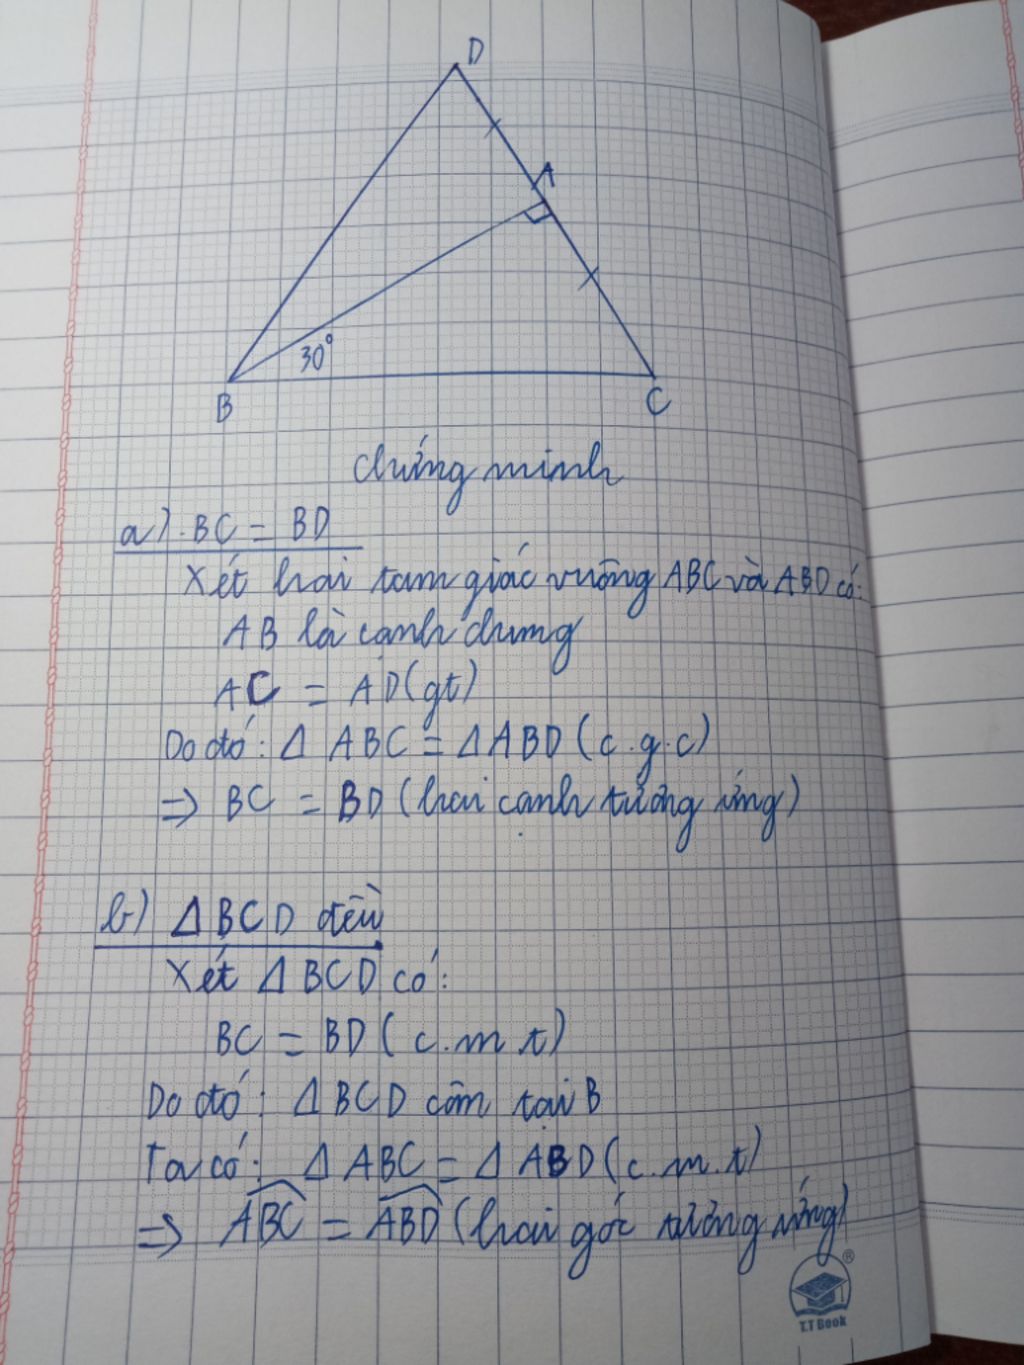 D
A
30°
B
C
Chứng minh
a) BC = BD
Xét hai tam giác vuông ABC và ABD có:
AB là cạnh chung
AC = AD (gt)
Do đó: Δ ABC = Δ ABD (c.g.c)
=> BC = BD (hai cạnh tương ứng)
b) Δ BCD đều
Xét Δ BCD có:
BC = BD (c.m.t)
Do đó: Δ BCD cân tại B
Ta có: Δ ABC = Δ ABD (c.m.t)
=> \widehat{ABC} = \widehat{ABD} (hai góc tương ứng)
®
T.T Book